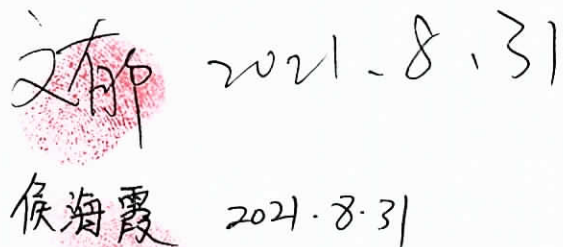 文郁 2021.8.31
侯海霞 2021.8.31